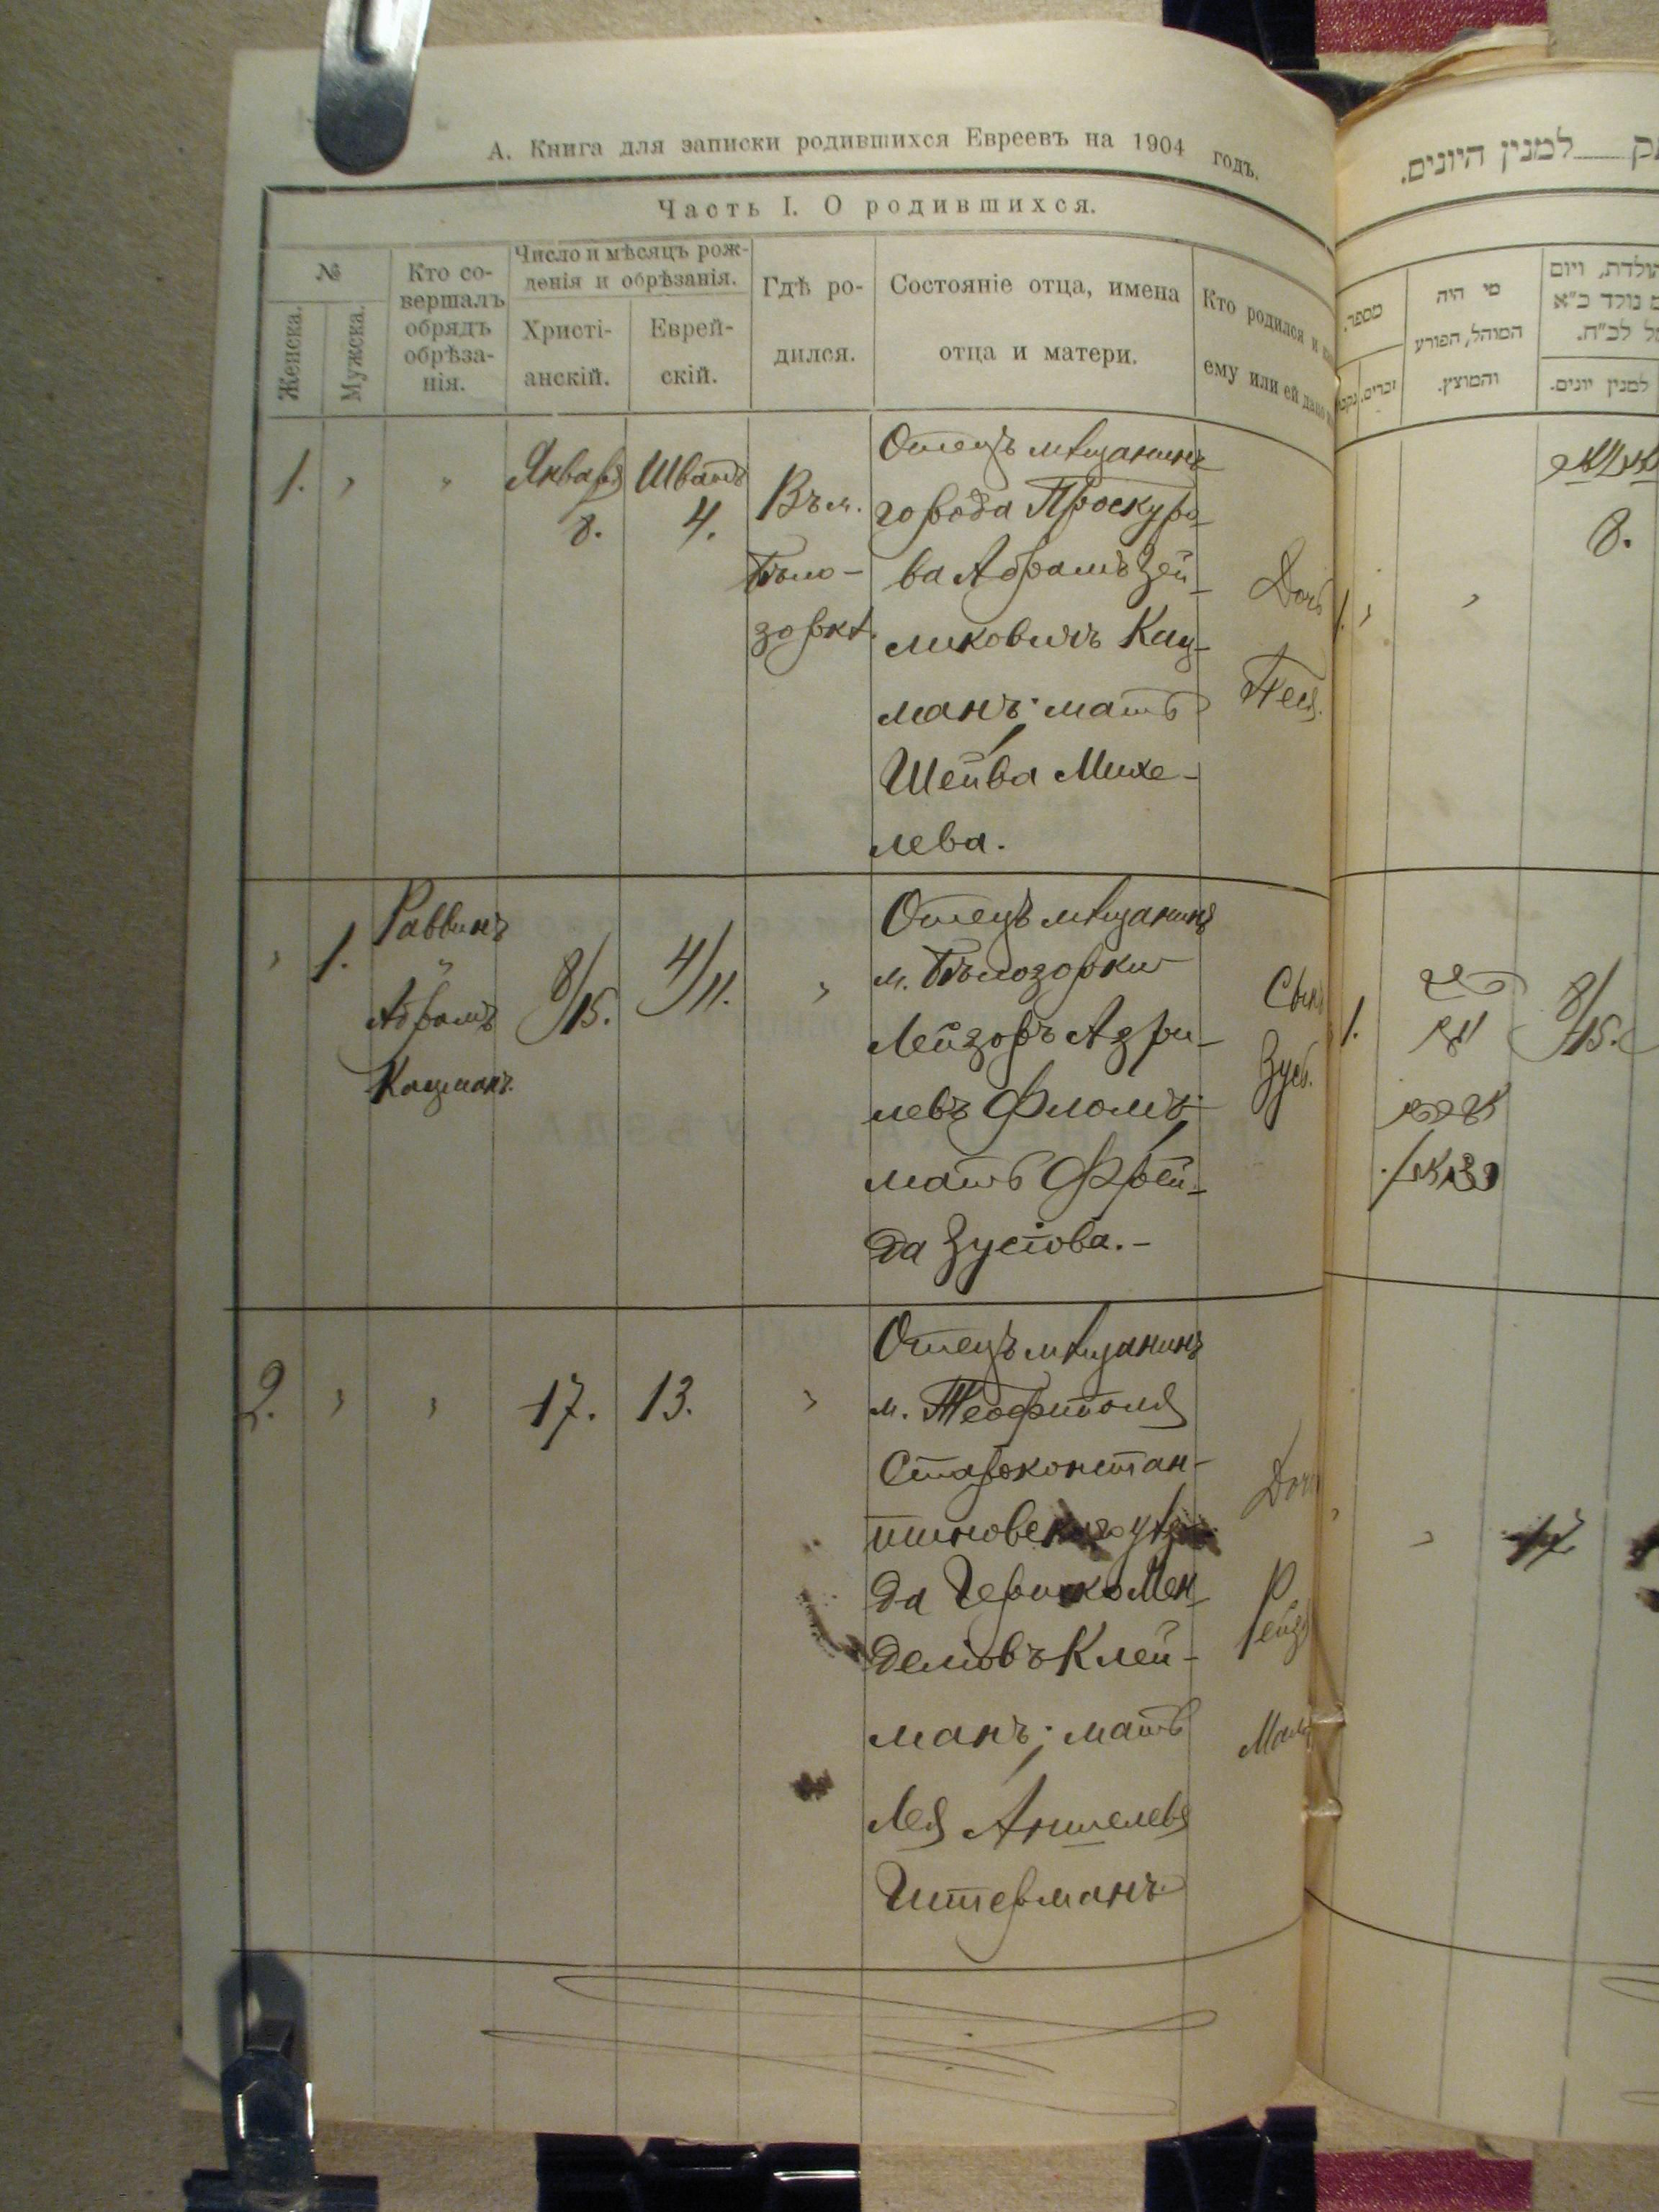 А. Книга для записки родившихся Евреевъ на 1904 годъ.
Часть I. О родившихся.
№
Женска.
Мужска.
Кто со-
вершалъ
обрядъ
обрѣза-
нія.
Число и мѣсяцъ рож-
денія и обрѣзанія.
Христі-
анскій.
Еврей-
скій.
Гдѣ ро-
дился.
Состояніе отца, имена
отца и матери.
Кто родился и
ему или ей дано
1. " "
Января
8.
Шватъ
4.
Въ м.
Бѣло-
зоркѣ.
Отецъ мѣщанинъ
города Проскуро-
ва Абрамъ Зей-
ликовичъ Кац-
манъ; мать
Шейва Михе-
лева.
Дочь
Песя.
" 1.
Раввинъ
"
Абрамъ
Кацманъ.
8/15.
4/11.
"
Отецъ мѣщанинъ
м. Бѣлозорки
Лейзоръ Азри-
левъ Фломъ;
мать Фрей-
да Зусіова.-
Сынъ
Зусь.
2. " "
17.
13.
"
Отецъ мѣщанинъ
м. Теофиполя
Староконстан-
тиновскаго уѣз-
да Гершко Мен-
деліовъ Клей-
манъ; мать
Лея Аншелева
Гитерманъ
Дочь
Рейзя
למנין היונים.
מספר.
זכרים.
מי היה
המוהל, הפורע
והמוצץ.
הולדת, ויום
נולד כ"א
לכ"ח.
למנין יונים.
8.
1. " "
1.
8/15.
" "
17